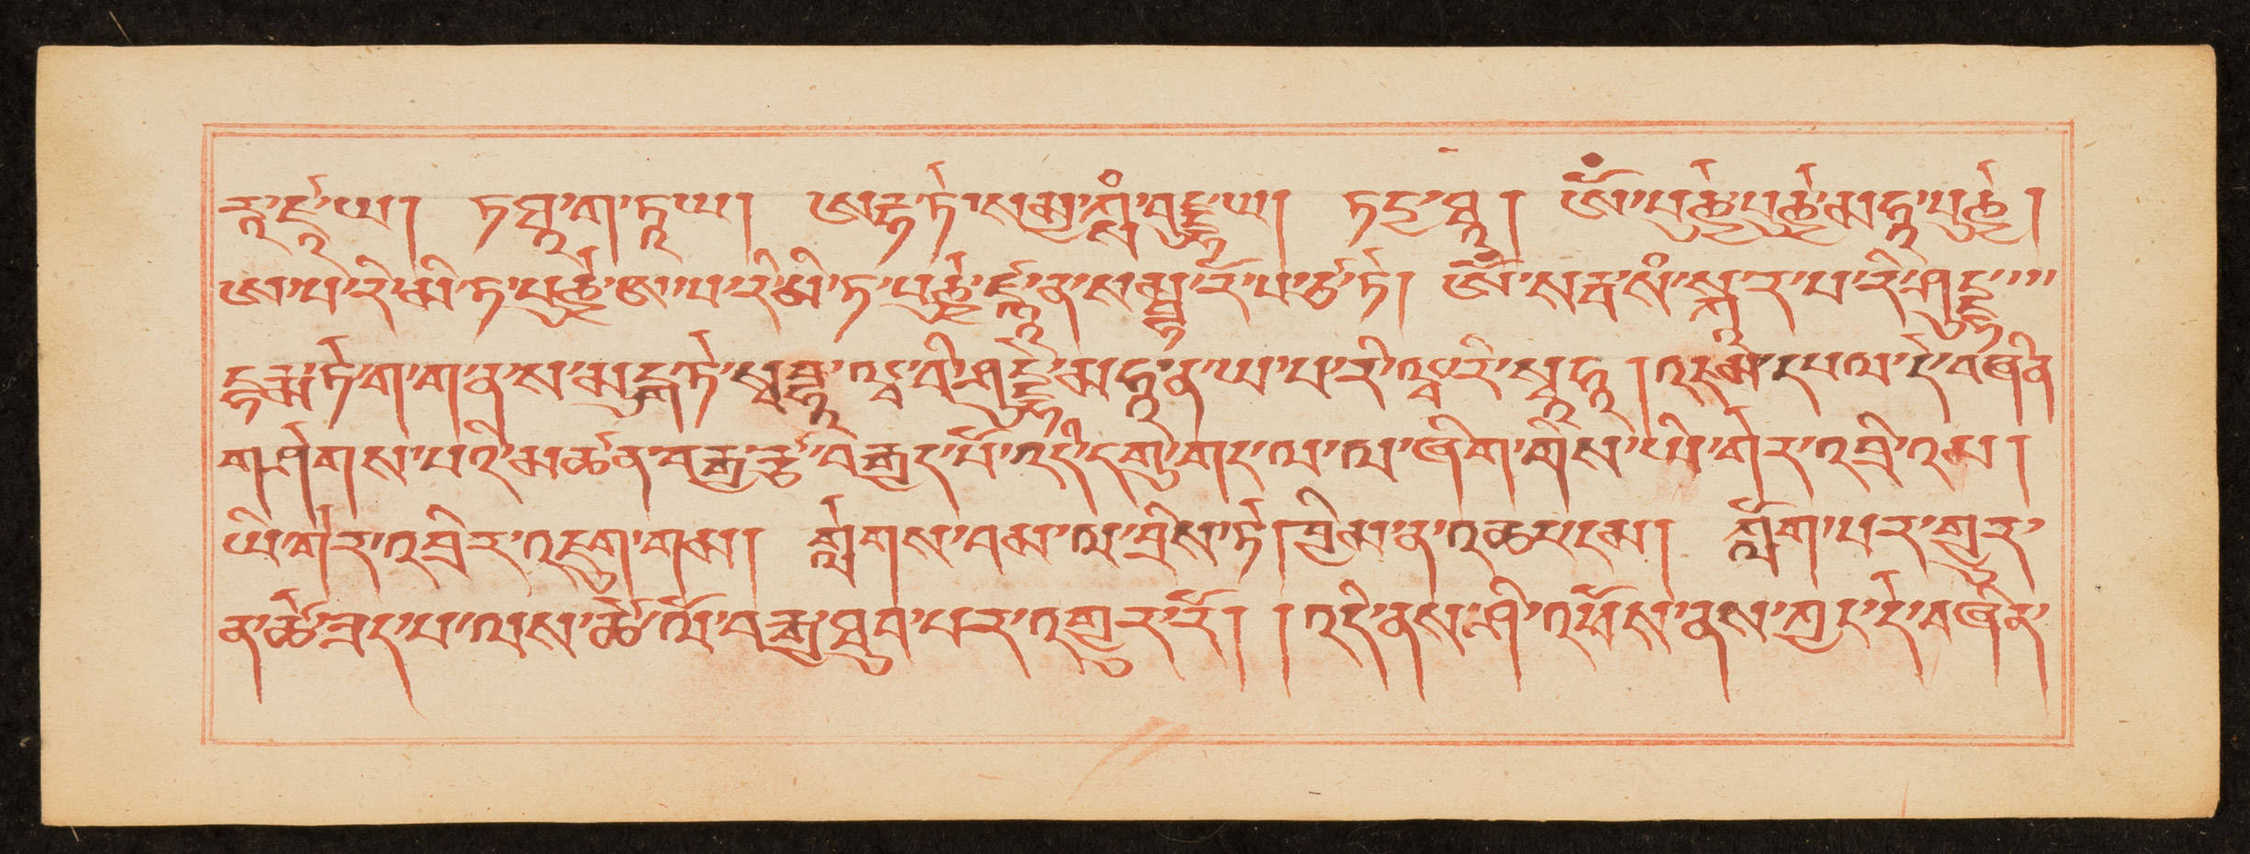 རཱ་ཛཱ་ཡ། ཏ་ཐཱ་ག་ཏཱ་ཡ། ཨརྷ་ཏེ་སམྱཀྶཾ་བུདྡྷ་ཡ། ཏདྱ་ཐཱ། ཨོཾ་པུཎྱེ་པུཎྱེ་མ་ཧཱ་པུཎྱེ།
ཨ་པ་རི་མི་ཏ་པུཎྱེ་ཨ་པ་རི་མི་ཏ་པུཎྱེ་ཛྙཱ་ན་སམྦྷ་རོ་པ་ཙི་ཏེ། ཨོཾ་སརྦ་སཾ་སྐཱ་ར་པ་རི་ཤུདྡྷ་
དྷརྨ་ཏེ་ག་ག་ན་ས་མུདྒ་ཏེ་སྭ་བྷཱ་ཝ་བི་ཤུདྡྷེ་མ་ཧཱ་ན་ཡ་པ་རི་ཝཱ་རི་སྭཱ་ཧཱ། འཇམ་དཔལ་དེ་བཞིན
གཤེགས་པའི་མཚན་བརྒྱ་རྩ་བརྒྱད་པོ་འདི་དགུ་གང་ལ་ལ་ཞིག་གིས་ཡི་གེར་འབྲི་འམ།
ཡི་གེར་འདྲིར་འཇུག་གམ། གླེགས་བམ་ལ་བྲིས་ཏེ།ཁྱིམ་ན་འཆང་ངམ། ཀློག་པར་གྱུར་
ན་ཚེ་ཟད་པ་ལས་ཚེ་ལོ་བརྒྱ་ཐུབ་པར་འགྱུར་རོ། །འདི་ནས་ཤི་འཕོས་ནས་ཀྱང་དེ་བཞིན་